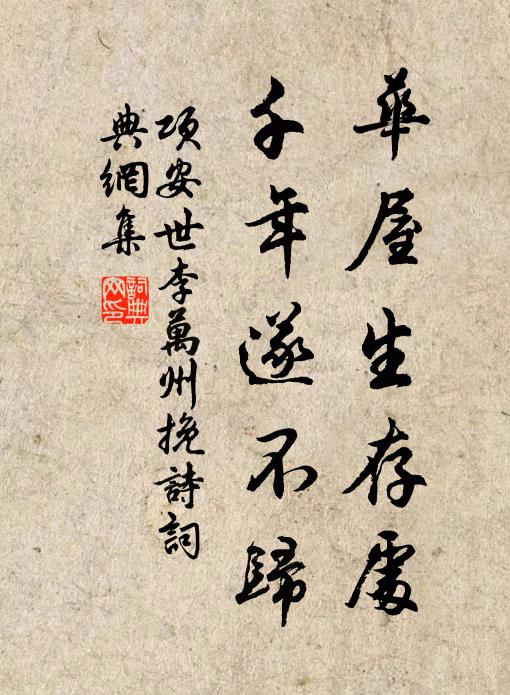 華屋生存處
千年遂不歸
項安世李萬州挽詩詞
典網集
詞典
网印